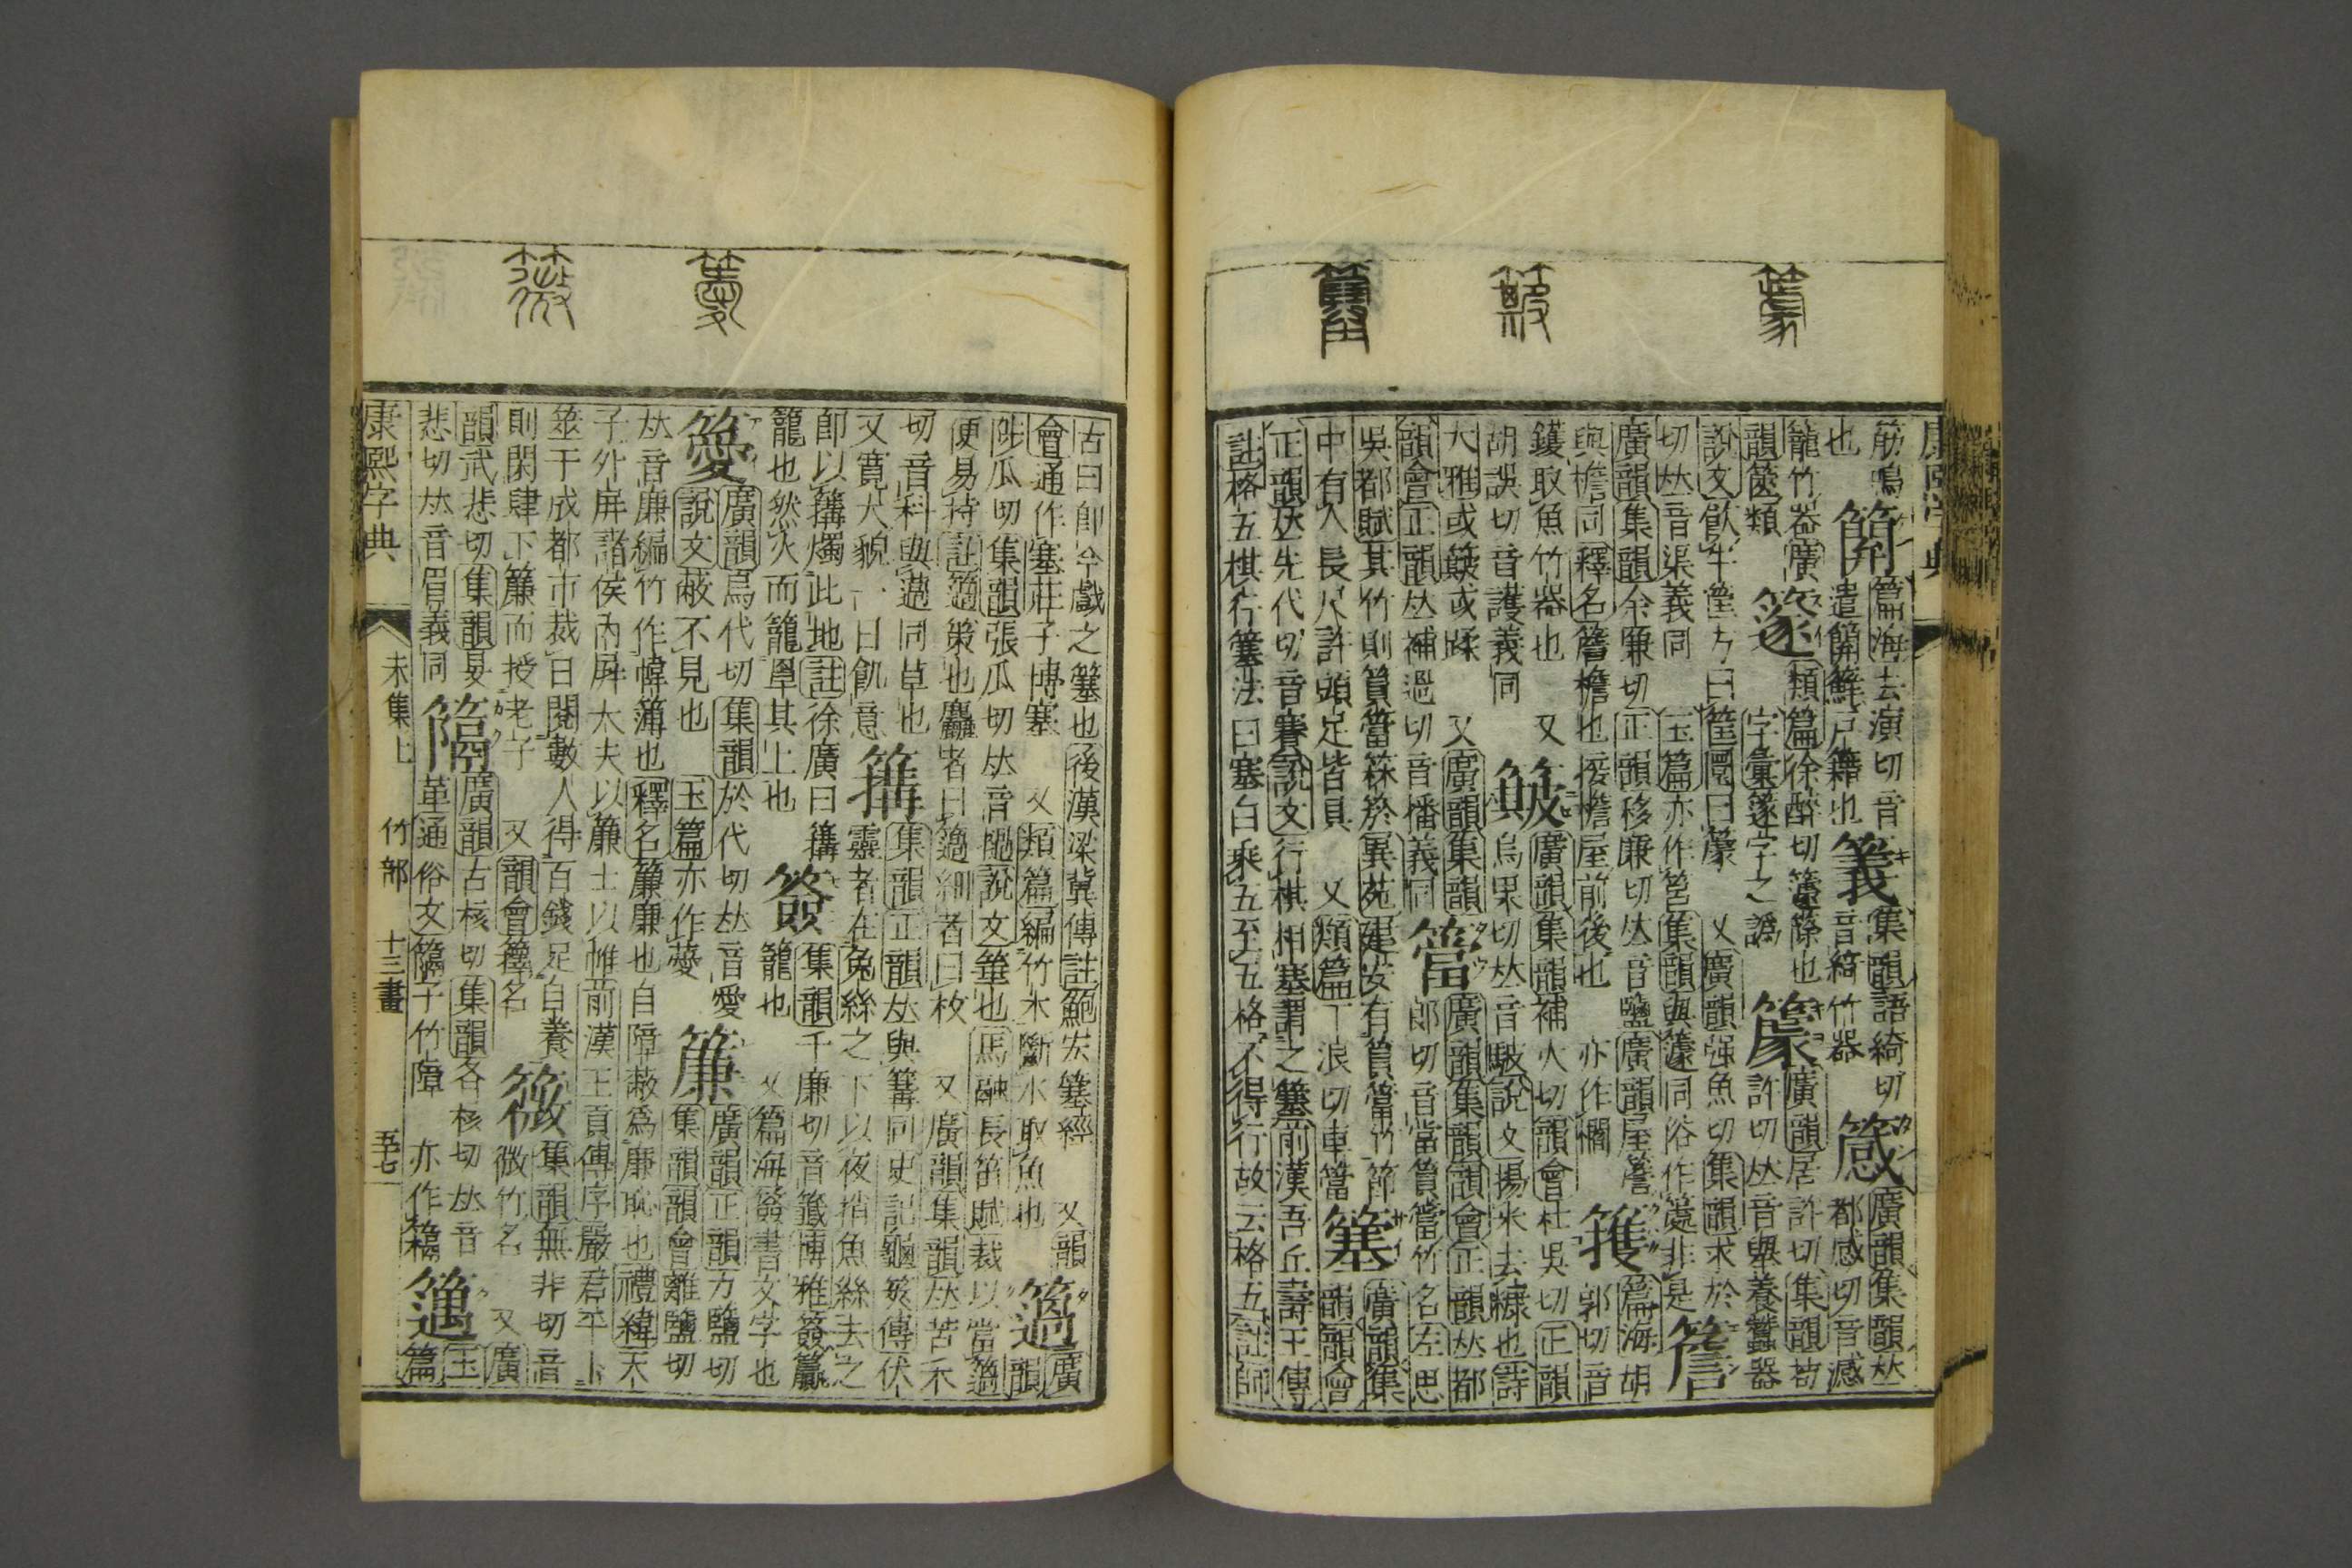 康熙字典
筋鳴也
篇海去演切音遣簡觧戸籍也
䉝集韻語綺切音綺竹器
廣韻集韻𠀤都感切音
籠竹器廣韻篋類
類篇徐醉切籧篨也字彙䉌字之譌
廣韻居許切集韻苟許切𠀤音舉養蠶器
說文飮牛筐方曰筐圜曰 又廣韻强魚切集韻求於切𠀤音渠義同玉篇亦作筥集韻與籧同俗作 非是
簷
廣韻集韻余廉切正韻移廉切𠀤音鹽廣韻屋簷與檐同釋名簷檐也接檐屋前後也 亦作櫩
篇海胡郭切音
鑊取魚竹器也 又胡誤切音護義同
簸廣韻集韻補火切韻會杜吳切正韻烏果切𠀤音駊說文揚米去糠也詩
大雅或簸或蹂 又廣韻集韻韻會正韻𠀤補過切音播義同
簹廣韻集韻韻會正韻𠀤都郎切音當篔簹竹名左思
吳都賦其竹則篔簹箖箊異苑建安有篔簹竹節中有人長尺許頭足皆具 又類篇丁浪切車簹
簺廣韻集韻韻會
正韻𠀤先代切音賽說文行棋相塞謂之簺前漢吾丘壽王傳註格五棋行簺法曰塞白乘五至五格不得行故云格五註師
古曰卽今戲之簺也後漢梁冀傳註鮑宏簺經 又韻會通作塞莊子博塞 又類篇編竹木斷水取魚也
簻廣韻
陟瓜切集韻張瓜切𠀤音檛說文箠也馬融長笛賦裁以當簻便易持註簻策也麤者曰簻細者曰枚 又廣韻集韻𠀤苦禾
切音科與薖同草也 又寬大貌一曰飢意
集韻正韻𠀤與篝同史記龜筴傳伏靈者在兔絲之下以夜捎兔絲去之
卽以篝燭此地註徐廣曰篝籠也然火而籠罩其上也
簽集韻千廉切音籤博雅簽籯籠也 又篇海簽書文字也
廣韻烏代切集韻於代切𠀤音愛說文蔽不見也 玉篇亦作薆
簾廣韻正韻力鹽切集韻韻會離鹽切
𠀤音廉編竹作幃薄也釋名簾廉也自障蔽爲廉恥也禮緯天子外屏諸侯內屏大夫以簾士以帷前漢王貢傳序嚴君平卜
筮于成都市裁日閱數人得百錢足自養則閉肆下簾而授老子 又韻會籜名
集韻無非切音微竹名 又廣
韻武悲切集韻旻悲切𠀤音眉義同
廣韻古核切集韻各核切𠀤音革通俗文 子竹障 亦作槅
玉篇
康熙字典 未集上 竹部 十三畫 五七